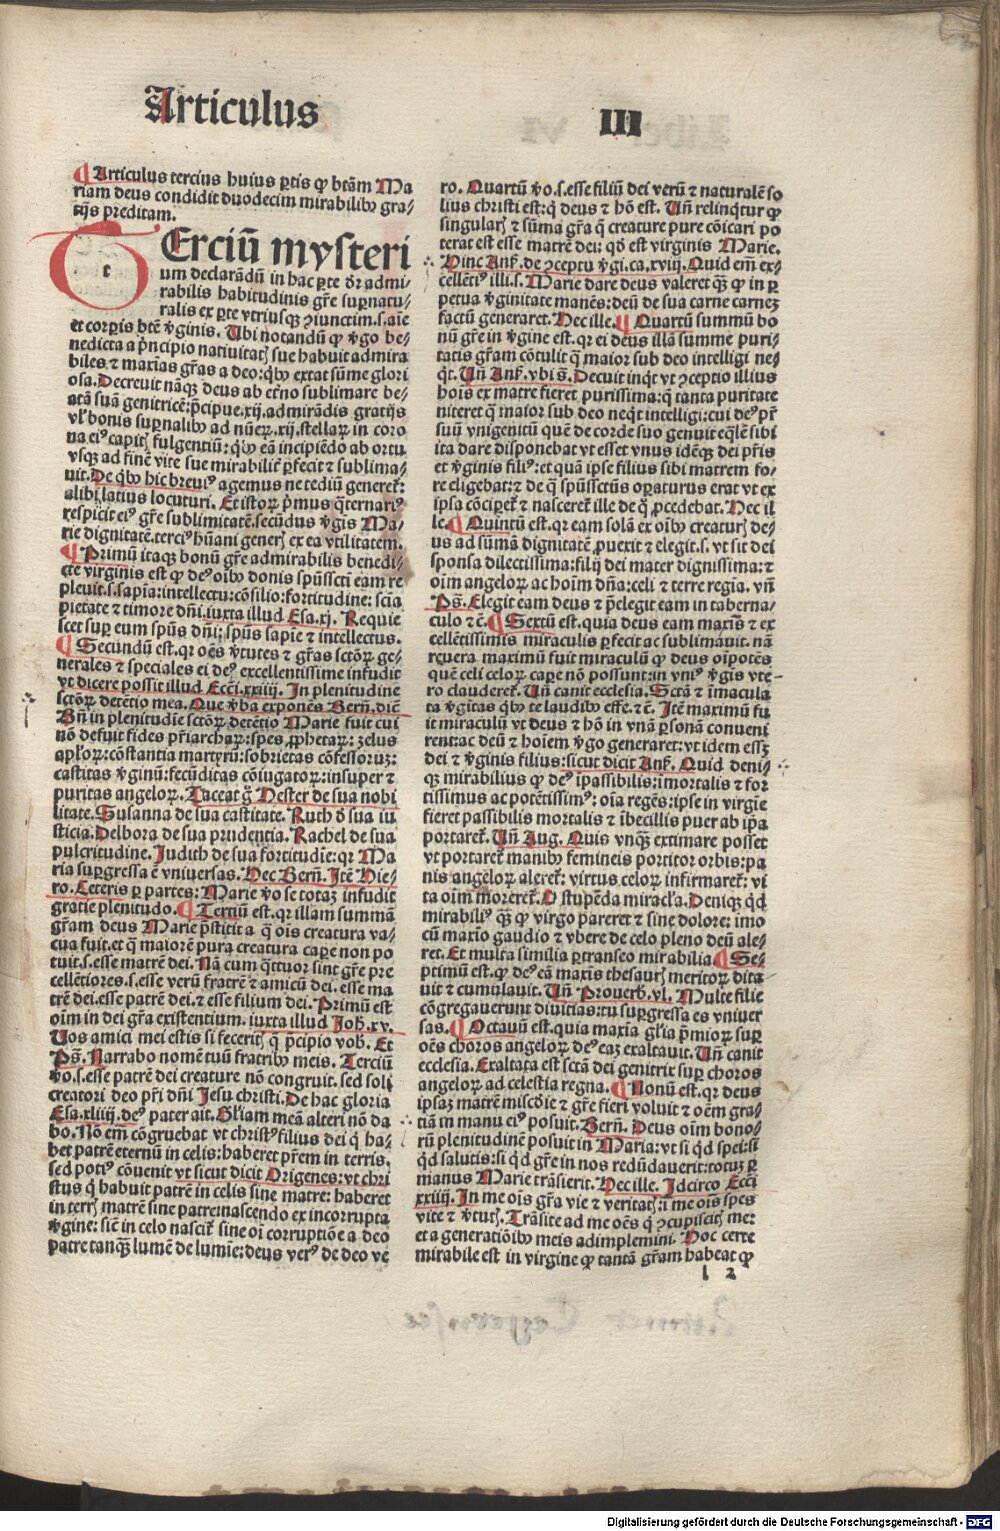 Articulus
III
¶ Articulus tercius huius ꝑtis ꝙ btãm Ma
riam deus condidit duodecim mirabilibꝰ gra⸗
tijs preditam.
TErciũ mysteri
um declarãdũ in hac ꝑte d̄r admi⸗
rabilis habitudinis gr̄e suꝑnatu⸗
ralis ex ꝑte vtriusqꝫ ꝯiunctim.s.aĩe
et corꝑis btẽ v̄ginis. Ubi notandũ ꝙ v̄go be⸗
nedicta a pͥncipio natiuitatꝭ sue habuit admira
biles ⁊ maxĩas gr̄as a deo: qͥbꝰ extat sũme glori
osa. Decreuit nãqꝫ deus ab etẽno sublimare be⸗
atã suã genitricẽ: p̄cipue .xij. admirãdis gratijs
vl̓ bonis suꝑnalibꝰ ad nũeꝝ .xij. stellaꝝ in coro
na eiꝰ capitꝭ fulgentiũ: qͥbꝰ eã incipiẽdo ab ortu
vsqꝫ ad finẽ vite sue mirabilit̓ ꝑfecit ⁊ sublima⸗
uit. De qͥbꝰ hic breuiꝰ agemus ne tediũ generet̓:
alibi latius locuturi. Et istoꝝ pͥmus qͣternariꝰ
respicit eiꝰ gr̄e sublimitatẽ. secũdus v̄gĩs Ma⸗
rie dignitatẽ. terciꝰ hũani generꝭ ex ea vtilitatem.
¶ Primũ itaqꝫ bonũ gr̄e admirabilis benedi⸗
cte virginis est ꝙ deꝰ oĩbꝰ donis spũssctĩ eam re
pleuit .s. sapĩa: intellectu: cõsilio: fortitudine: scĩa
pietate ⁊ timore dñi. iuxta illud Esa. xj. Requie
scet suꝑ eum spũs dñi: spũs sapie ⁊ intellectus.
¶ Secundũ est. qꝛ oẽs v̄tutes ⁊ gr̄as sctõꝝ ge⸗
nerales ⁊ speciales ei deꝰ excellentissime infudit
vt dicere possit illud Ecc̃i. xxiiij. In plenitudine
sctõꝝ detẽtio mea. Que v̓ba exponẽs Bern̄. dic̃
Bñ in plenitudĩe sctõꝝ detẽtio Marie fuit cui
nõ defuit fides pr̃iarchaꝝ: spes ꝓphetaꝝ: zelus
apl̓oꝝ: cõstantia martyrũ: sobrietas cõfessoꝝ:
castitas v̄ginũ: fecũditas cõiugatoꝝ: insuper ⁊
puritas angeloꝝ. Taceat gͦ Hester de sua nobi
litate. Susanna de sua castitate. Ruth d̓ sua iu
sticia. Delbora de sua prudentia. Rachel de sua
pulcritudine. Judith de sua fortitudĩe: qꝛ Ma
ria suꝑgressa ẽ vniuersas. Hec Bern̄. Itẽ Hie⸗
ro. Ceteris ꝑ partes: Marie v̓o se totaꝫ infudit
gratie plenitudo. ¶ Terciũ est. qꝛ illam summã
gr̄am deus Marie p̄stitit a qͣ oĩs creatura va⸗
cua fuit. et qͣ maiorẽ pura creatura capere non po
tuit .s. esse matrẽ dei. Nã cum qͣttuor sint gr̄e pre
cellẽtiores .s. esse verũ fratrẽ ⁊ amicũ dei. esse ma
trẽ dei. esse patrẽ dei. ⁊ esse filium dei. Primũ est
oĩm in dei gr̄a existentium. iuxta illud Joh̄. xv.
Uos amici mei estis si feceritꝭ q̄ p̄cipio vob̄. Et
Ps̄. Narrabo nomẽ tuũ fratribꝰ meis. Terciũ
v̓o .s. esse patrẽ dei creature nõ congruit. sed soli
creatori deo pr̃i dñi Jesu christi. De hac gloria
Esa. xliiij. deꝰ pater ait. Gl̃iam meã alteri nõ da
bo. Nõ em̃ cõgruebat vt christꝰ filius dei qͥ ha⸗
bet patrẽ eternũ in celis: haberet pr̃em in terris.
sed potiꝰ cõuenit vt sicut dicit Origenes: vt chri
stus qͥ habuit patrẽ in celis sine matre: haberet
in terrꝭ matrẽ sine patre: nascendo ex incorrupta
v̄gine: sic̃ in celo nascit̓ sine oĩ corruptiõe a deo
patre tanqͣꝫ lumẽ de lumĩe: deus verꝰ de deo ve
ro. Quartũ v̓o .s. esse filiũ dei verũ ⁊ naturalẽ so
lius christi est: qͥ deus ⁊ hõ est. Uñ relinqͥtur ꝙ
singularꝭ ⁊ sũma gr̄a q̄ creature pure cõicari po
terat est esse matrẽ dei: qd̓ est virginis Marie.
Hinc Ans̄. de ꝯceptu v̓gi. ca. xviij. Quid em̃ ex⸗
cellẽtiꝰ illi .s. Marie dare deus valeret qͣꝫ ꝙ in ꝑ
petua v̄ginitate manẽs: deũ de sua carne carneꝫ
factũ generaret. Hec ille. ¶ Quartũ summũ bo
nũ gr̄e in v̄gine est. qꝛ ei deus illã summe puri⸗
tatis gr̄am cõtulit qͣ maior sub deo intelligi ne⸗
qͥt. Uñ Ans̄. vbi s̄. Decuit inqͥt vt ꝯceptio illius
hoĩs ex matre fieret purissima: q̄ tanta puritate
niteret qͣ maior sub deo neqͥt intelligi: cui deꝰ pr̃
suũ vnigenitũ quẽ de corde suo genuit eq̃lẽ sibi
ita dare disponebat vt esset vnus idẽqꝫ dei pr̃is
et v̄ginis filiꝰ: et quã ipse filius sibi matrem fo⸗
re eligebat: ⁊ de qͣ spũssctũs oꝑaturus erat vt ex
ipsa cõciꝑet̓ ⁊ nasceret̓ ille de qͦ ꝓcedebat. Hec il
le. ¶ Quintũ est. qꝛ eam solã ex oĩbꝰ creaturꝭ de⸗
us ad sũmã dignitatẽ ꝓuexit ⁊ elegit .s. vt sit dei
sponsa dilectissima: filij dei mater dignissima: ⁊
oĩm angeloꝝ ac hoĩm dña: celi ⁊ terre regia. vñ
Ps̄. Elegit eam deus ⁊ p̄elegit eam in taberna⸗
culo ⁊ c̃. ¶ Sextũ est. quia deus eam maxĩs ⁊ ex
cellẽtissimis miraculis ꝑfecit ac sublimauit. nã
reuera maximũ fuit miraculũ ꝙ deus oĩpotẽs
quẽ celi celoꝝ caꝑe nõ possunt: in vniꝰ v̓gĩs vte⸗
ro clauderet̓. Uñ canit ecclesia. Sctã ⁊ ĩmacula
ta v̄gĩtas qͥbꝰ te laudibꝰ effe. ⁊ c̃. Itẽ maximũ fu
it miraculũ vt deus ⁊ hõ in vnã ꝑsonã conueni
rent: ac deũ ⁊ hoĩem v̄go generaret: vt idem esset
dei ⁊ v̄ginis filius: sicut dicit Ans̄. Quid deni⸗
qꝫ mirabilius ꝙ deꝰ ĩpassibilis: ĩmortalis ⁊ for
tissimus ac potẽtissimꝰ: oĩa regẽs: ipse in virgĩe
fieret passibilis mortalis ⁊ ĩbecillis puer ab ip̃a
portaret̓. Uñ Aug. Quis vnqͣꝫ extimare posset
vt portaret̓ manibꝰ femineis portitor orbis: pa
nis angeloꝝ aleret̓: virtus celoꝝ infirmaret̓: vi
ta oĩm moreret̓. O stupẽda miracl̓a. Deniqꝫ qͥd
mirabiliꝰ qͣꝫ ꝙ virgo pareret ⁊ sine dolore: ĩmo
cũ maxĩo gaudio ⁊ vbere de celo pleno deũ ale⸗
ret. Et multa similia ꝑtranseo mirabilia. ¶ Se⸗
ptimũ est. ꝙ deꝰ eã maxĩs thesaurꝭ meritoꝝ dita
uit ⁊ cumulauit. Uñ Prouerb̄. vl. Multe filie
cõgregauerunt diuitias: tu suꝑgressa es vniuer
sas. ¶ Octauũ est. quia maxĩa gl̓ia p̄mioꝝ suꝑ
oẽs choros angeloꝝ deꝰ eaꝫ exaltauit. Uñ canit
ecclesia. Exaltata est sctã dei genitrix suꝑ choros
angeloꝝ ad celestia regna. ¶ Nonũ est. qꝛ deus
ipsaꝫ matrẽ miscd̓ie ⁊ gr̄e fieri voluit ⁊ oẽm gra⸗
tiã in manu eiꝰ posuit. Bern̄. Deus oĩm bono⸗
rũ plenitudinẽ posuit in Maria: vt si qͥd spei: si
qͥd salutis: si qͥd gr̄e in nos redũdauerit: totuꝫ ꝑ
manus Marie trãsierit. Hec ille. Idcirco Ecc̃i
xxiiij. In me oĩs gr̄a vie ⁊ veritatꝭ: ĩ me oĩs spes
vite ⁊ v̓tutꝭ. Trãsite ad me oẽs qͥ ꝯcupiscitꝭ me:
et a generatiõibꝰ meis adimplemini. Hoc certe
mirabile est in virgine ꝙ tantã gr̄am habeat ꝙ
l 2
Digitalisierung gefördert durch die Deutsche Forschungsgemeinschaft - DFG